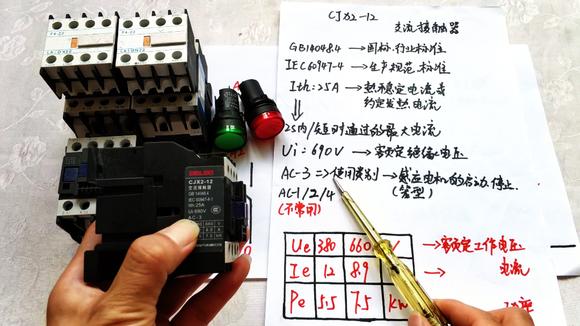 CJX2-12
交流接触器
GB14048.4 → 国标.行业标准
IEC60947-4 → 生产规范.标准
Ith:25A → 热稳定电流或
约定发热电流
2S内/短时通过的最大电流
Ui:690V → 额定绝缘电压
AC-3 => 使用类别 → 感应电机的启动.停止.
AC-1/2/4 (笼型)
(不常用)
Ue 380 660 V → 额定工作电压
Ie 12 8.9 → 电流
Pe 5.5 7.5 KW
DELIXI
CJX2-12
交流接触器
GB 14048.4
IEC60947-4-1
Ith:25A
Ui:690V
AC-3